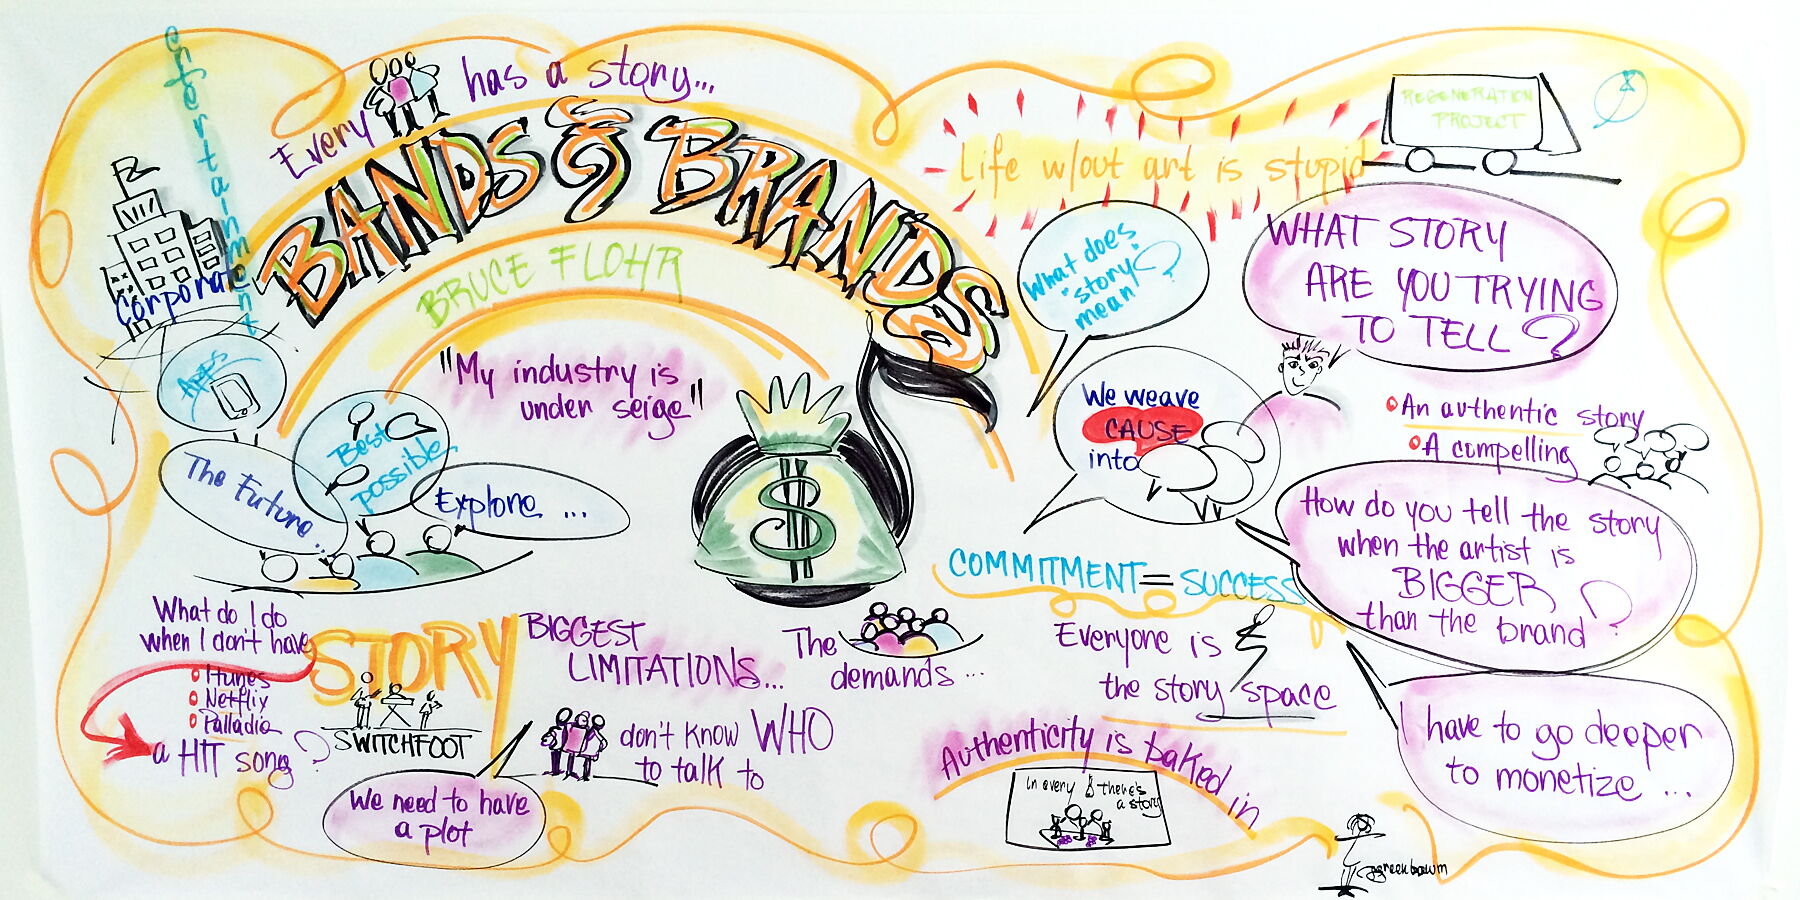 Every has a story...
BANDS & BRANDS
BRUCE FLOHR
"My industry is
under seige"
$
entertainment
Corporate
APPS
The Future...
Best
possible
Explore ...
What do I do
when I don't have
Itunes
Netflix
Palladia
a HIT song?
STORY
SWITCHFOOT
We need to have
a plot
BIGGEST
LIMITATIONS...
don't know WHO
to talk to
The
demands...
Life w/out art is stupid
REGENERATION
PROJECT
What does
"story"
mean?
WHAT STORY
ARE YOU TRYING
TO TELL?
We weave
CAUSE
into
An authentic story
A compelling
COMMITMENT = SUCCESS
How do you tell the story
when the artist is
BIGGER
than the brand?
Everyone is
the story space
I have to go deeper
to monetize ...
Authenticity is baked in
In every there's
a story